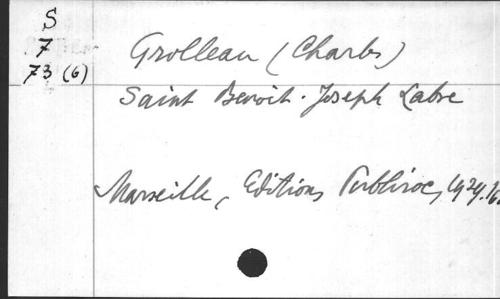 S
7
73 (6)
Grolleau (Charles)
Saint Benoit-Joseph Labre
Marseille, Editions Publiroc, 1929.